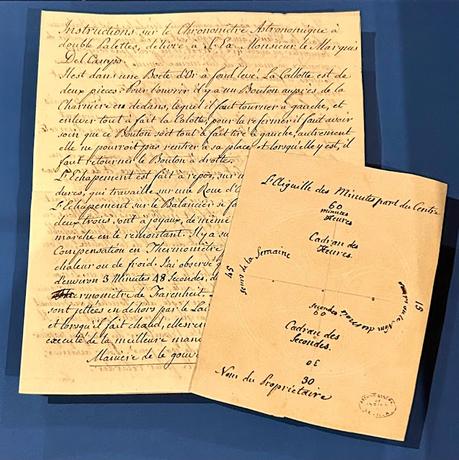 Instructions sur le Chronomètre Astronomique à
double Palettes, délivré à S. Ex. Monsieur le Marquis
Del Campo.
Il est dans une Boete d'Or à fond leué, La Callotte est de
deux pieces. Pour l'ouvrir il y a un Bouton auprès de la
Charnière en dedans, lequel il faut tourner à gauche, et
enlever tout à fait la Calotte, pour la refermer il faut avoir
soin que ce Bouton soit tout à fait tiré le gauche, autrement
elle ne pourroit pas rentrer à sa place, et lorsqu'elle y est, il
faut retourner le Bouton à droite.
L'Echapement est fait à repos, sur
dures, qui travaille sur une Roue d'
L'Echapement sur le Balancier se fa
deux trous, sont à joyaux, de même
marche en le remontant. Il y a su
Compensation en Thermomètre
chaleur ou de froid. J'ai observé q
d'environ 3 Minutes 48 Secondes, de
Thermomètre de Farenheit.
sont jettées en dehors par le La
et lorsqu'il fait chaud, elles ren
executé de la meilleure mani
Manière de le gouv
L'Aiguille des Minutes part du Centre
60
minutes
Heures
Cadran des
Heures.
45
Jours de la Semaine
15
60
Cadran des
Secondes.
30
30
Nom du Propriétaire